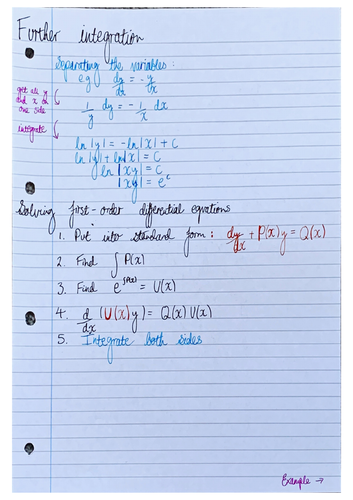 Further integration
Separating the variables:
eg dy/dx = -y/x
get all y and x on one side
1/y dy = -1/x dx
integrate
ln|y| = -ln|x| + C
ln|y| + ln|x| = C
ln|xy| = C
|xy| = e^c
Solving first-order differential equations
1. Put into standard form: dy/dx + P(x)y = Q(x)
2. Find ∫P(x)
3. Find e^∫P(x) = U(x)
4. d/dx (U(x)y) = Q(x)U(x)
5. Integrate both sides
Example →